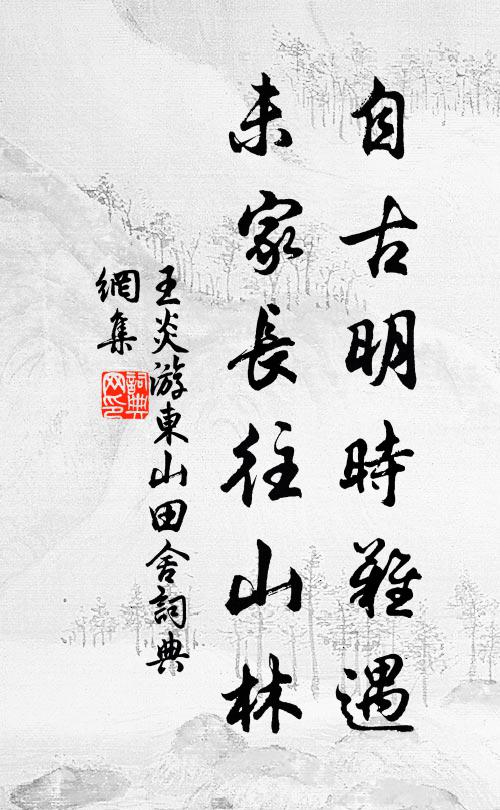 自古明時難遇
未家長往山林
王炎游東山田舍詞典
網集
詞典
网印